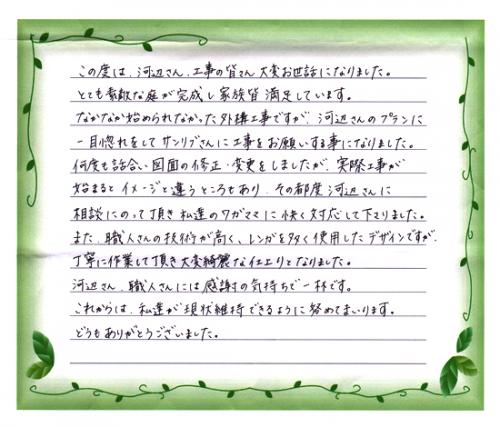 この度は、河辺さん、工事の皆さん大変お世話になりました。
とても素敵な庭が完成し家族皆満足しています。
なかなか始められなかった外構工事ですが、河辺さんのプランに
一目惚れをしてサンリブさんに工事をお願いする事になりました。
何度も話合い図面の修正・変更をしましたが、実際工事が
始まるとイメージと違うところもあり、その都度河辺さんに
相談にのって頂き私達のワガママに快く対応して下さりました。
また、職人さんの技術が高く、レンガを多く使用したデザインですが、
丁寧に作業して頂き大変綺麗な仕上りとなりました。
河辺さん、職人さんには感謝の気持ちで一杯です。
これからは、私達が現状維持できるように努めてまいります。
どうもありがとうございました。